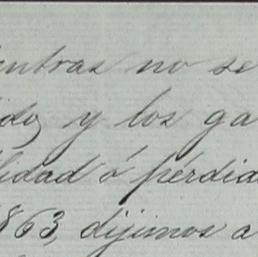 ientras no se
ido, y los ga
lidad ó pérdid
1863, dijimos a